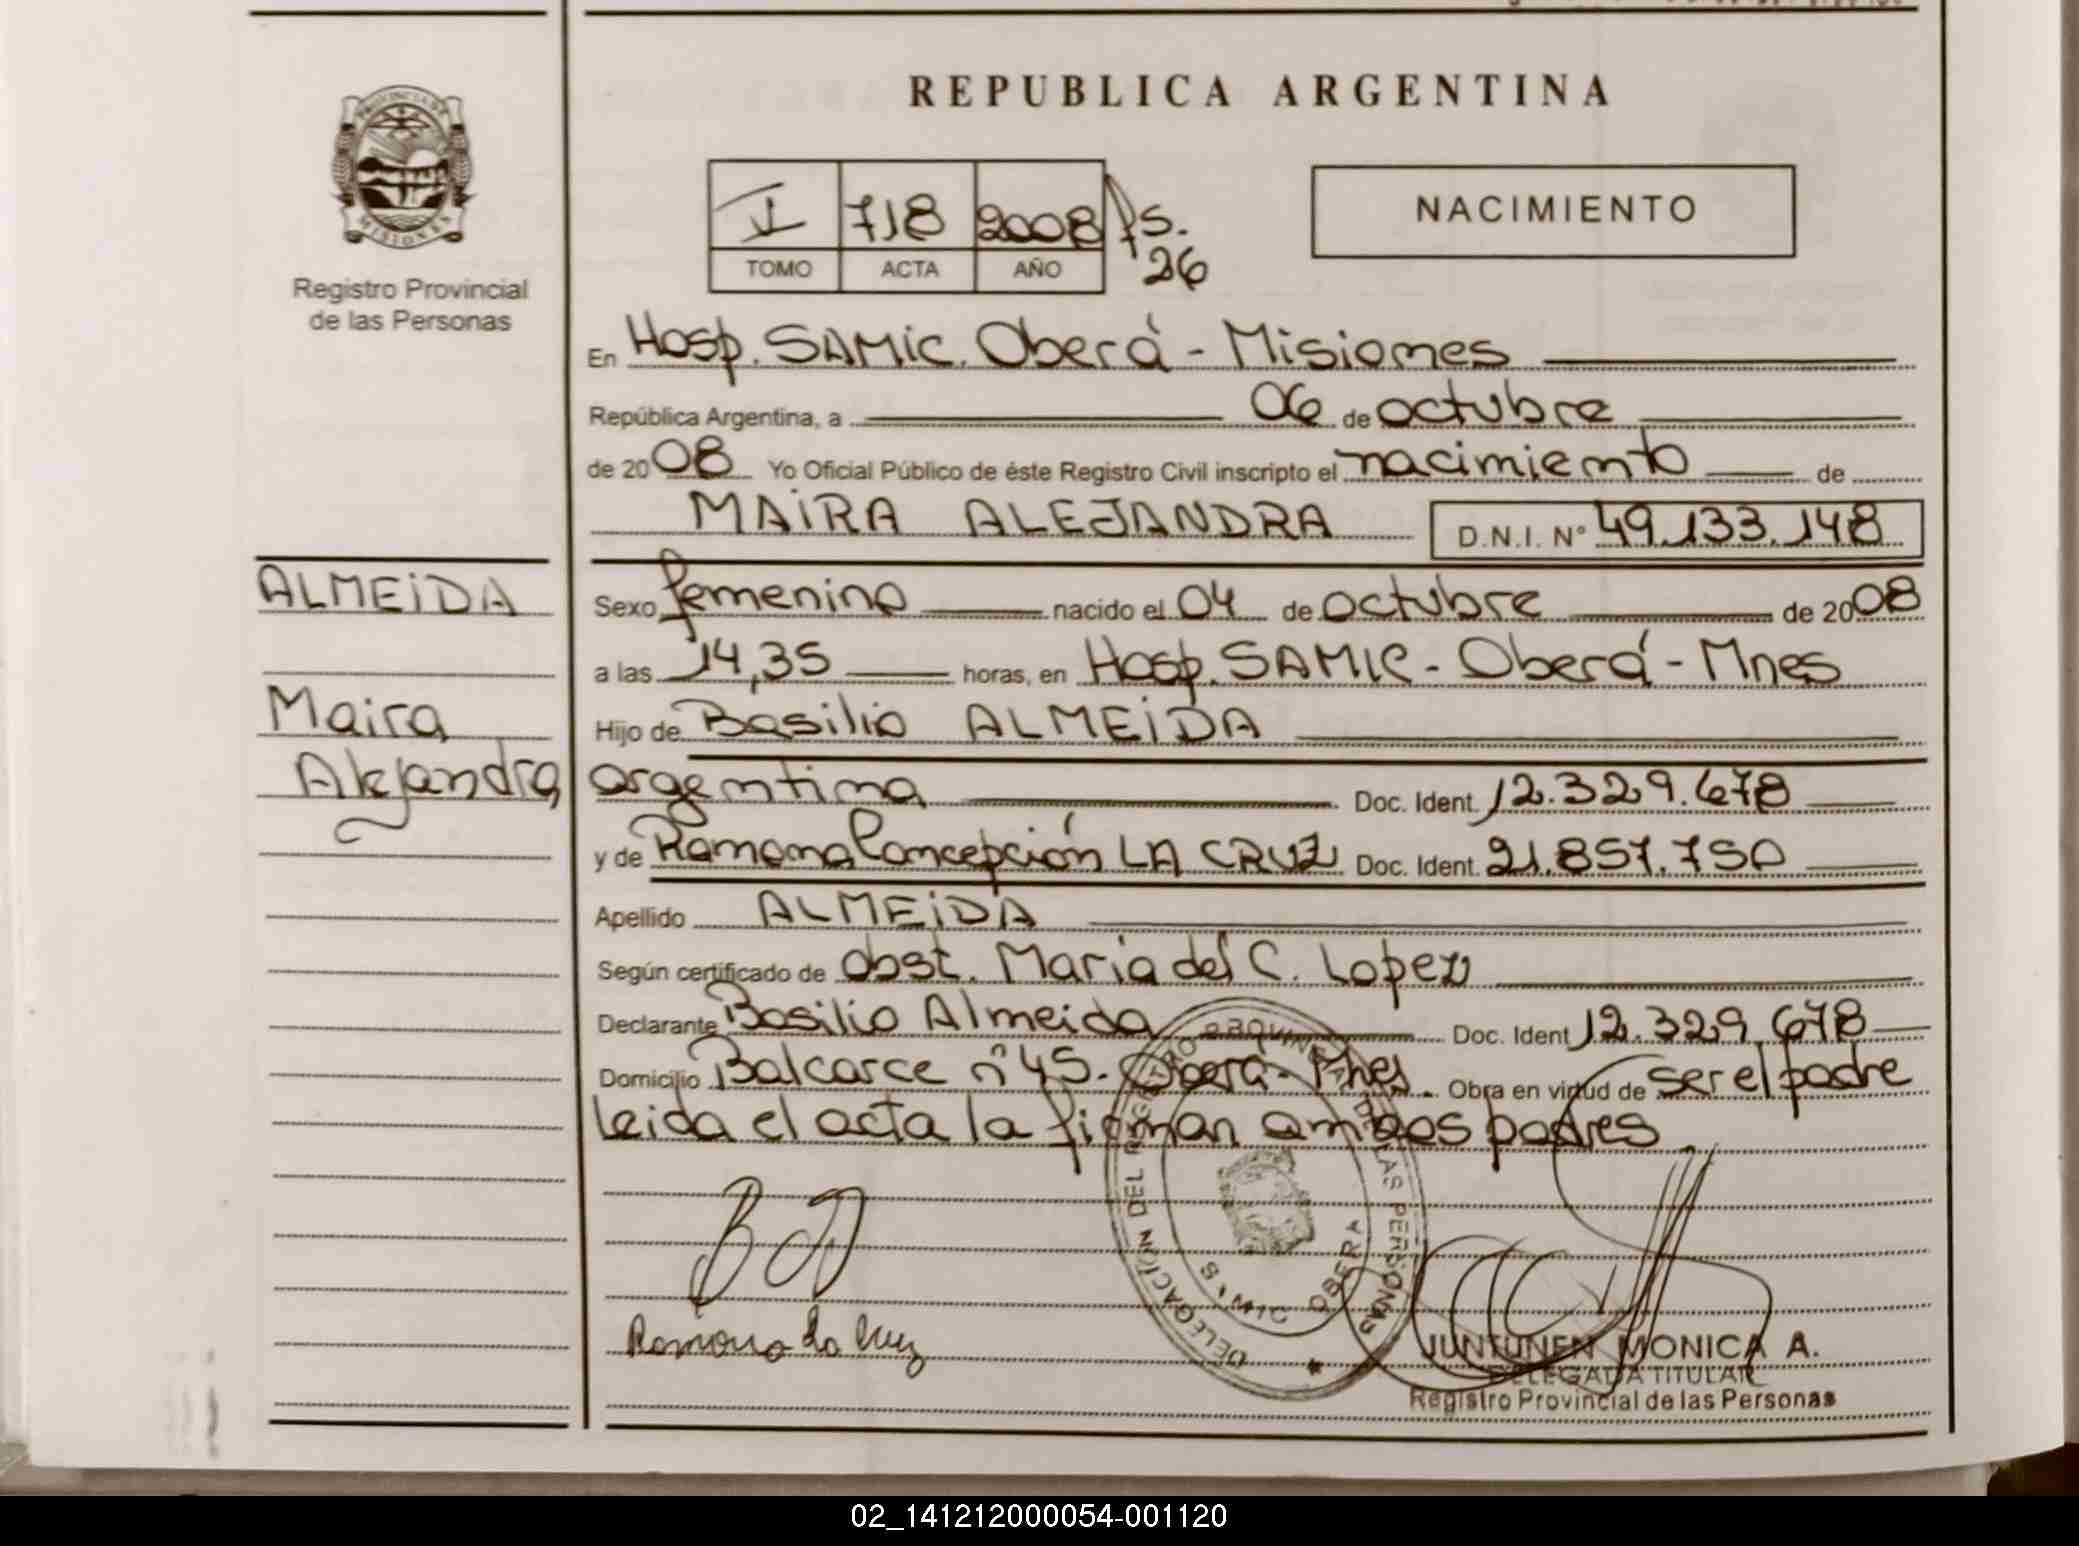 REPUBLICA ARGENTINA
PROVINCIA DE
MISIONES
Registro Provincial
de las Personas
II 718 2008 fs.
26
TOMO ACTA AÑO
NACIMIENTO
En Hosp. SAMIC. Oberá - Misiones
República Argentina, a 06 de octubre
de 2008 Yo Oficial Público de éste Registro Civil inscripto el nacimiento de
MAIRA ALEJANDRA D.N.I. N° 49.133.148
ALMEIDA
Maira
Alejandra
Sexo femenino nacido el 04 de octubre de 2008
a las 14,35 horas, en Hosp. SAMIC - Oberá - Mnes
Hijo de Basilio ALMEIDA
argentina Doc. Ident. 12.329.678
y de Ramona Concepción LA CRUZ Doc. Ident. 21.857.750
Apellido ALMEIDA
Según certificado de obst. Maria del C. Lopez
Declarante Basilio Almeida Doc. Ident 12.329.678
Domicilio Balcarce n° 45. Oberá - Mnes. Obra en virtud de ser el padre
leida el acta la firman ambos padres
DELEGACIÓN DEL REGISTRO PROVINCIAL DE LAS PERSONAS
OBERA
Ramona La Cruz
JUNTUNEN MONICA A.
DELEGADA TITULAR
Registro Provincial de las Personas
02_141212000054-001120